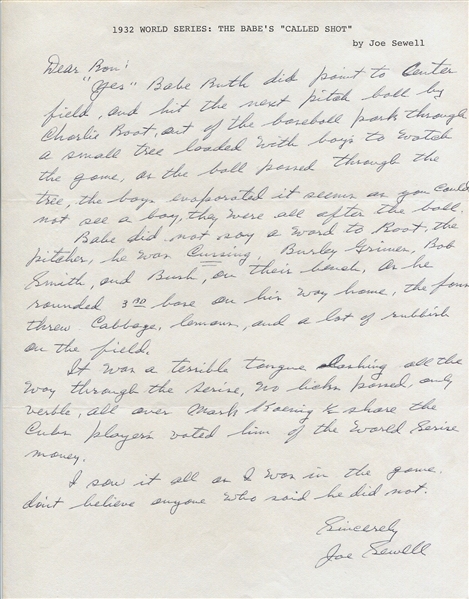 1932 WORLD SERIES: THE BABE'S "CALLED SHOT"
by Joe Sewell
Dear Bon:
"Yes" Babe Ruth did point to Center
field, and hit the next pitch ball by
Charlie Root, out of the baseball park through
a small tree loaded with boys to watch
the game, as the ball passed through the
tree, the boys evaporated it seems as you could
not see a boy, they were all after the ball.
Babe did not say a word to Root, the
pitcher, he was Cussing, Burley Grimes, Bob
Smith, and Bush, on their bench, as he
rounded 3RD base on his way home, the fans
threw Cabbage, lemons, and a lot of rubbish
on the field.
It was a terrible tongue lashing all the
way through the serise, no licks passed only
verble, all over Mark Koenig ½ share the
Cubs players voted him of the World Serise
money.
I saw it all as I was in the game.
don't believe anyone who said he did not.
Sincerely
Joe Sewell